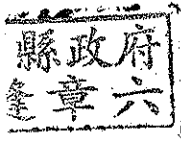 縣政府
逢章六